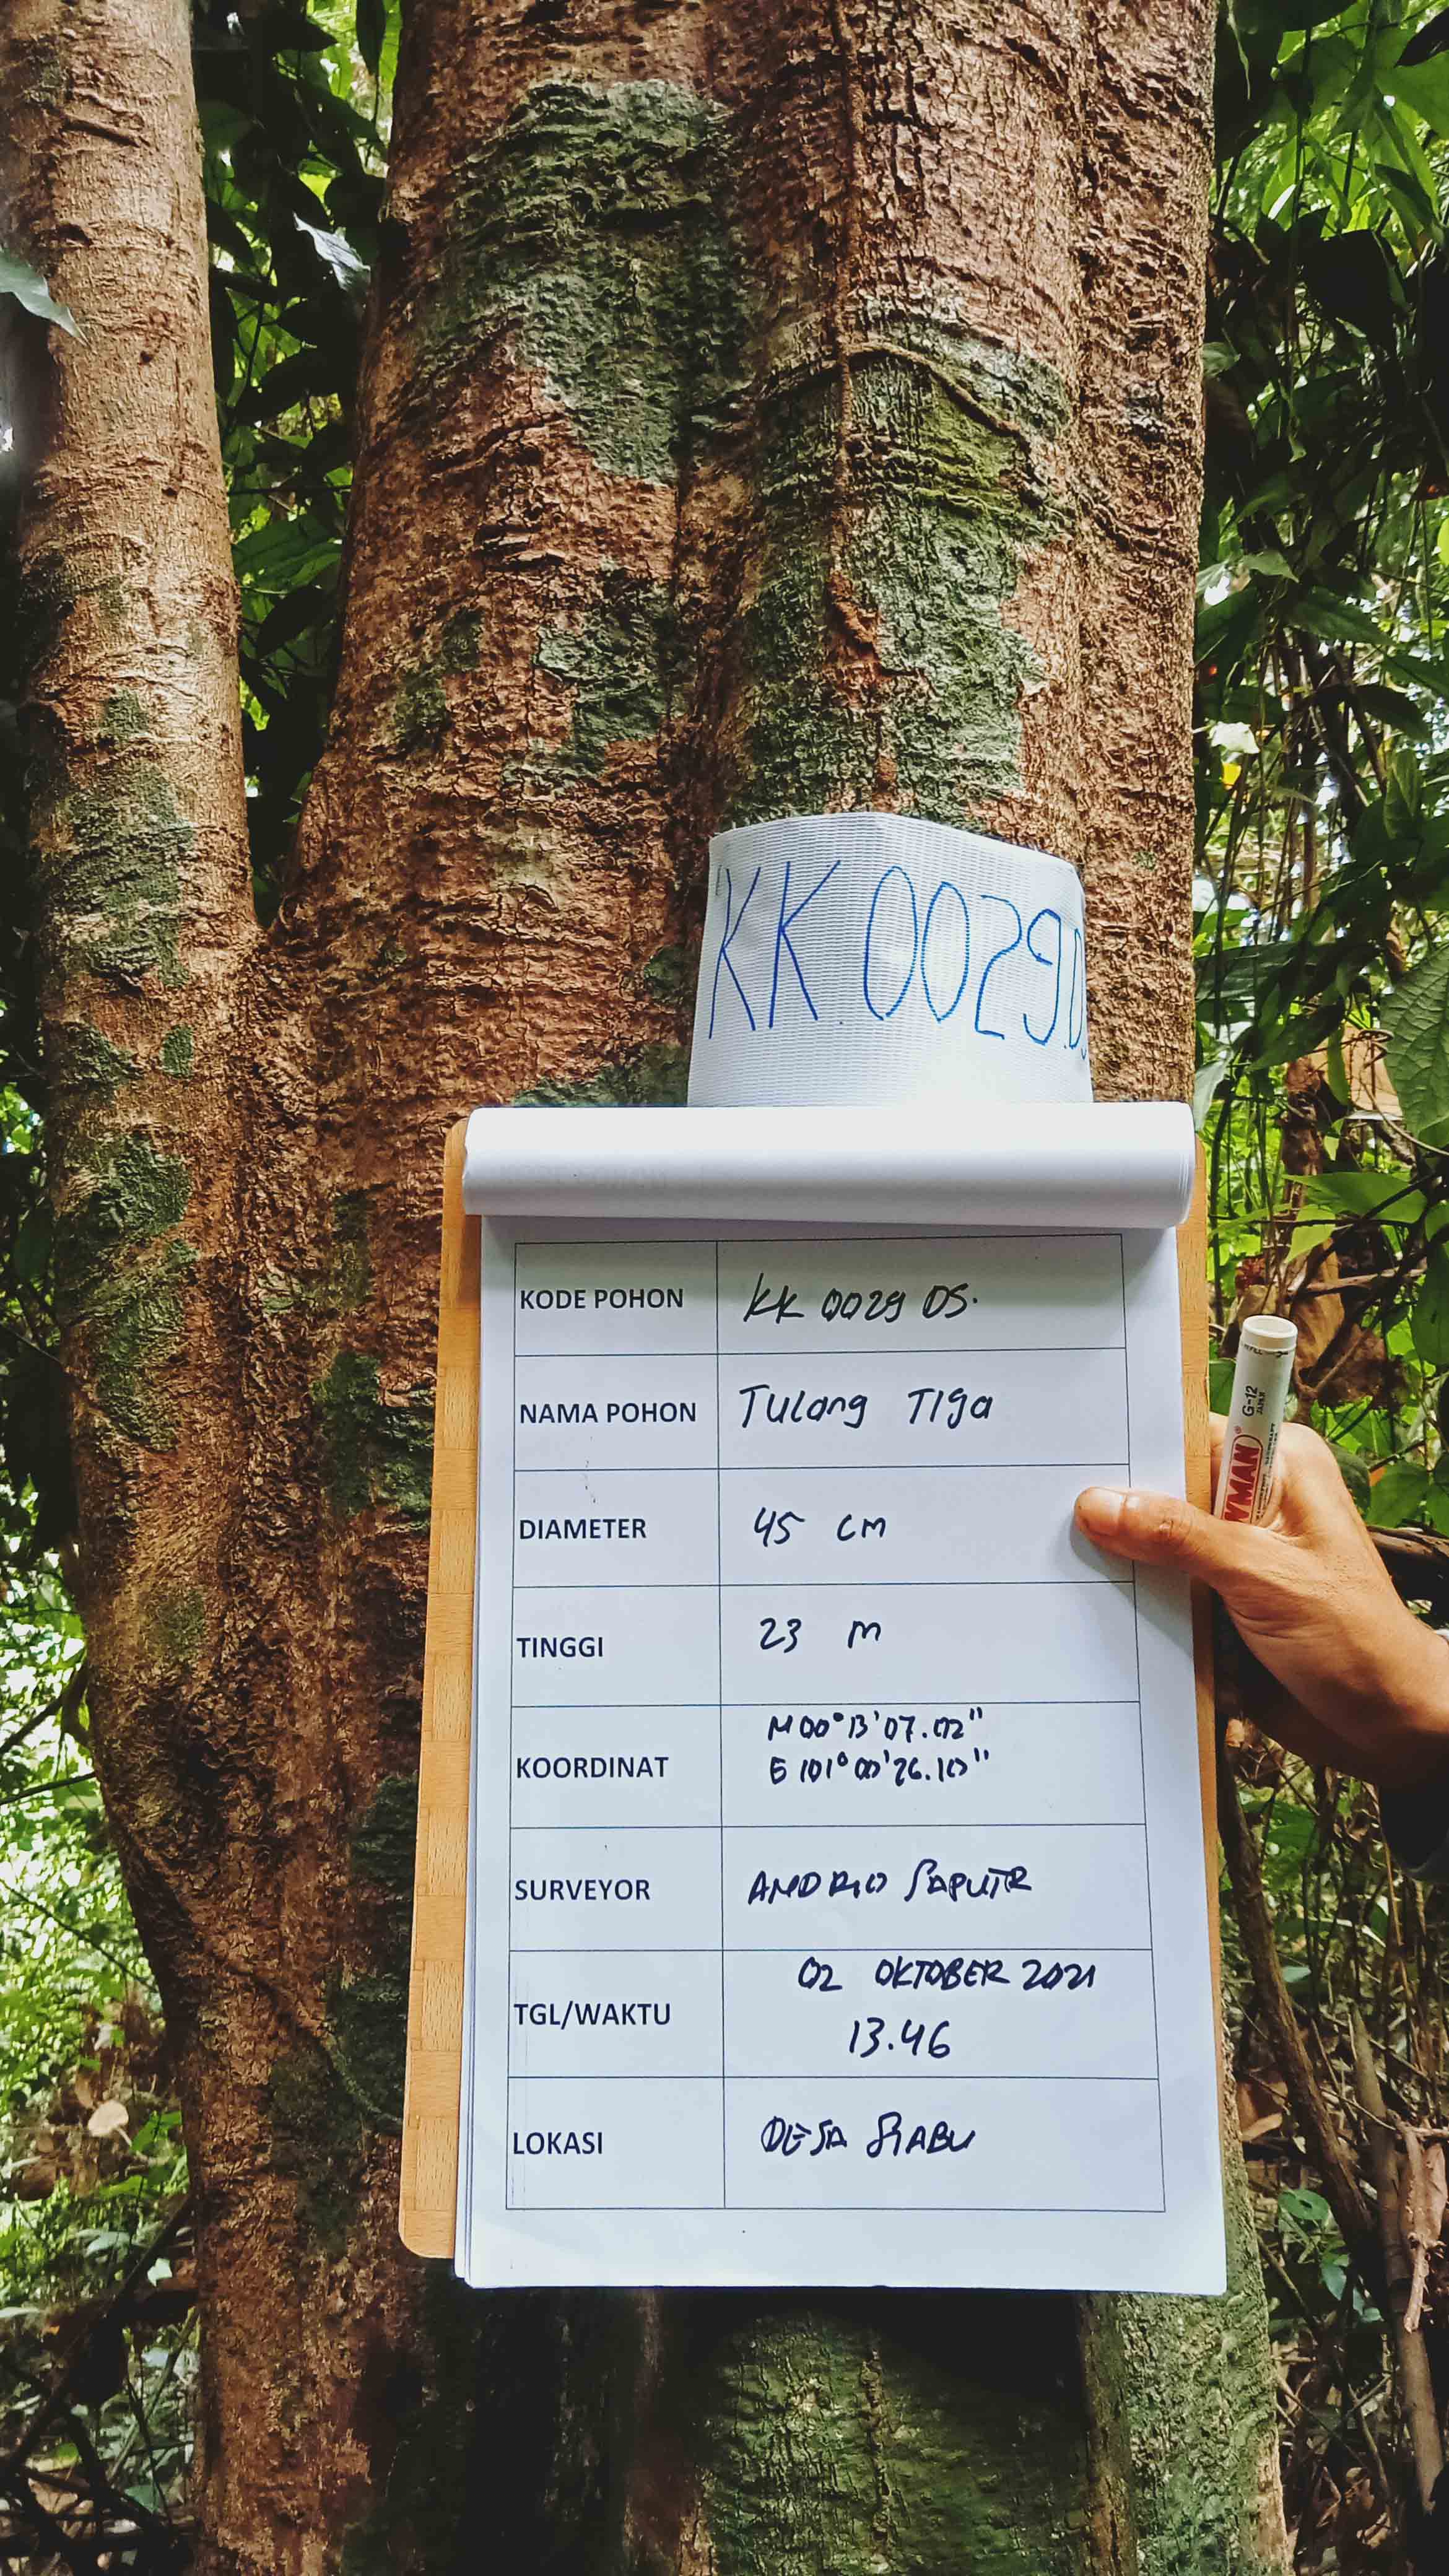 KK 0029.D
KODE POHON KK 0029 DS.
NAMA POHON Tulang Tiga
DIAMETER 45 cm
TINGGI 23 m
KOORDINAT N 00° 13' 07.02"
E 101° 00' 26.10"
SURVEYOR ANDRIO SAPUTR
TGL/WAKTU 02 OKTOBER 2021
13.46
LOKASI DESA SIABU
G-12
JAPAN